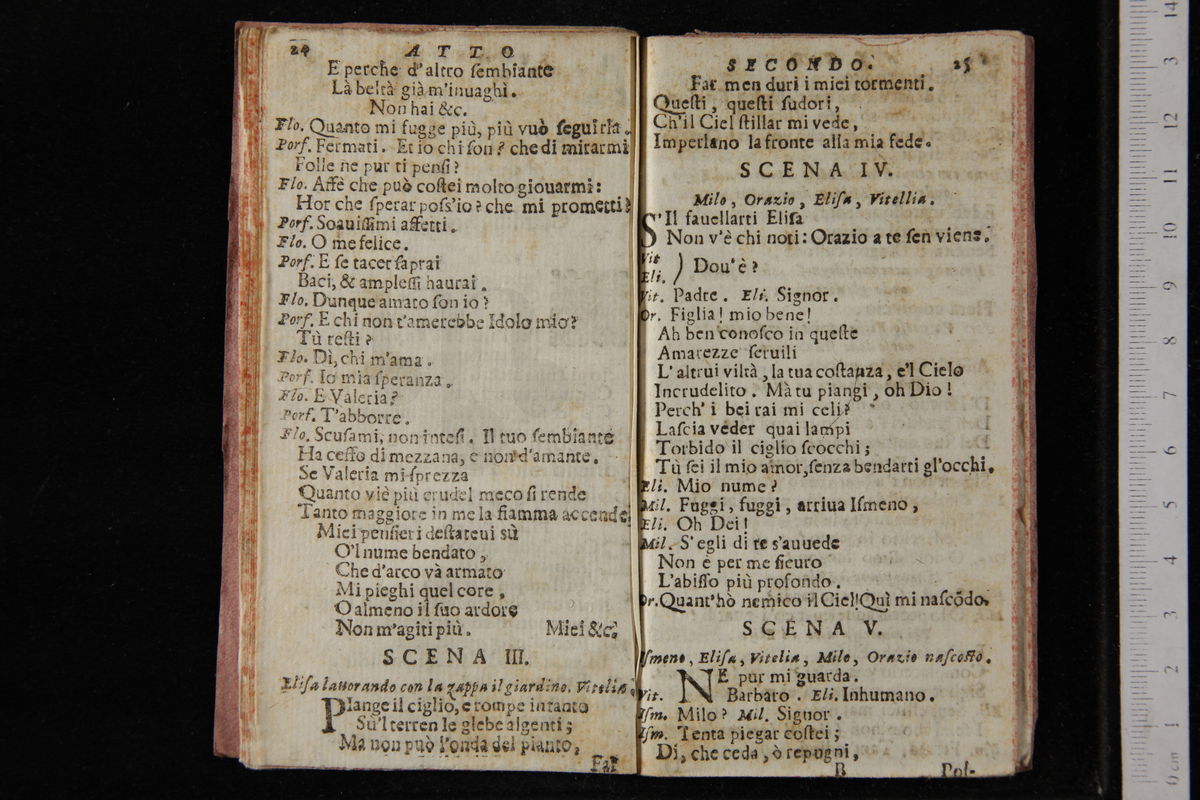 24 ATTO
E perche d'altro ſembiante
Là beltà già m'inuaghì.
Non hai &c.
Flo. Quanto mi fugge più, più vuò ſeguirla.
Porf. Fermati. Et io chi ſon? che di mirarmi
Folle ne pur ti penſi?
Flo. Affè che può coſtei molto giouarmi:
Hor che ſperar poſs'io? che mi prometti?
Porf. Soauiſſimi affetti.
Flo. O me felice.
Porf. E ſe tacer ſaprai
Baci, & ampleſſi haurai.
Flo. Dunque amato ſon io?
Porf. E chi non t'amerebbe Idolo mio?
Tù reſti?
Flo. Dì, chi m'ama.
Porf. Io mia ſperanza.
Flo. E Valeria?
Porf. T'abborre.
Flo. Scuſami, non inteſi. Il tuo ſembiante
Ha ceffo di mezzana, e non d'amante.
Se Valeria mi ſprezza
Quanto viè più crudel meco ſi rende
Tanto maggiore in me la fiamma accende.
Miei penſieri deſtateui sù
O'l nume bendato,
Che d'arco và armato
Mi pieghi quel core,
O almeno il ſuo ardore
Non m'agiti più. Miei &c.
SCENA III.
Eliſa lauorando con la zappa il giardino. Vitelia.
PIange il ciglio, e rompe intanto
Sù'l terren le glebe algenti;
Ma non può l'onda del pianto,
Far
SECONDO. 25
Far men duri i miei tormenti.
Queſti, queſti ſudori,
Ch'il Ciel ſtillar mi vede,
Imperlano la fronte alla mia fede.
SCENA IV.
Milo, Orazio, Eliſa, Vitellia.
S'Il fauellarti Eliſa
Non v'è chi noti: Orazio a te ſen viene.
Vit
Eli. ) Dou'è?
Vit. Padre. Eli. Signor.
Or. Figlia! mio bene!
Ah ben conoſco in queſte
Amarezze ſeruili
L'altrui viltà, la tua coſtanza, e'l Cielo
Incrudelito. Mà tu piangi, oh Dio!
Perch' i bei rai mi celi?
Laſcia veder quai lampi
Torbido il ciglio ſcocchi;
Tù ſei il mio amor, ſenza bendarti gl'occhi.
Eli. Mio nume?
Mil. Fuggi, fuggi, arriua Iſmeno,
Eli. Oh Dei!
Mil. S'egli di te s'auuede
Non è per me ſicuro
L'abiſſo più profondo.
Or. Quant'hò nemico il Ciel! Quì mi naſcōdo.
SCENA V.
Iſmeno, Eliſa, Vitelia, Milo, Orazio naſcoſto.
NE pur mi guarda.
Vit. Barbaro. Eli. Inhumano.
Iſm. Milo? Mil. Signor.
Iſm. Tenta piegar coſtei;
Dì, che ceda, ò repugni,
B Poſ-